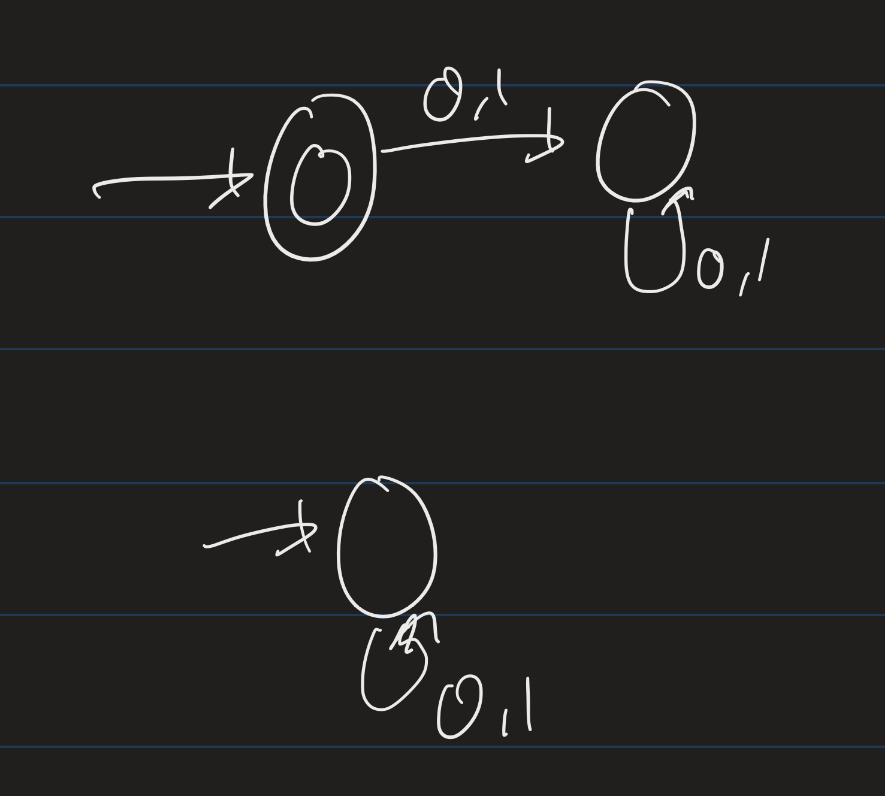 0,1
0,1
0,1